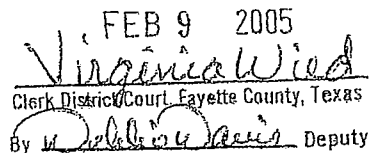 FEB 9 2005
Virginia Wied
Clerk District Court, Fayette County, Texas
By Debbie Davis Deputy